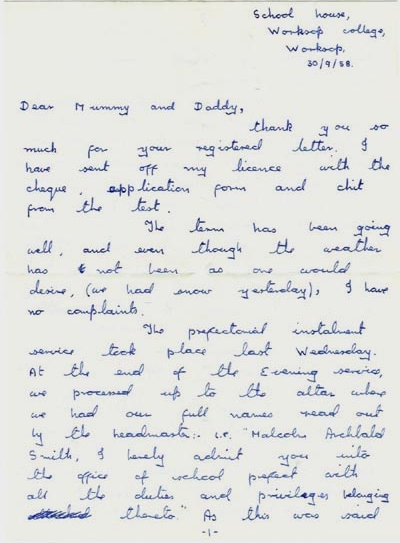 School house,
Worksop college,
Worksop.
30/9/58.
Dear Mummy and Daddy,
thank you so
much for your registered letter. I
have sent off my licence with the
cheque, application form and chit
from the test.
The term has been going
well, and even though the weather
has not been as one would
desire, (we had snow yesterday), I have
no complaints.
The prefectorial instalment
service took place last Wednesday.
At the end of the Evening service,
we processed up to the altar where
we had our full names read out
by the headmaster:- i.e. "Malcolm Archbald
Smith, I herely admit you into
the office of school prefect with
all the duties and privileges belonging
thereto." As this was said
-1-